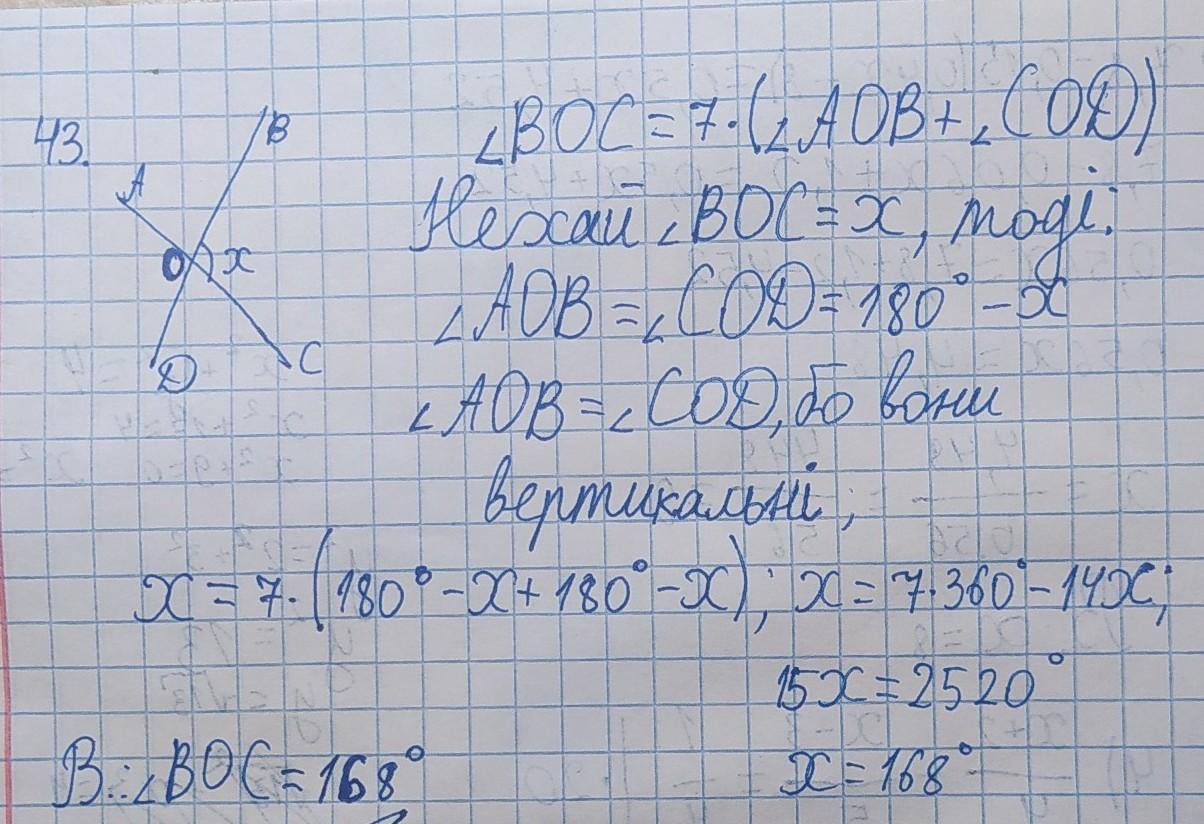 43.
B
A
O
x
D
C
∠BOC = 7·(∠AOB + ∠COD)
Нехай ∠BOC = x, тоді:
∠AOB = ∠COD = 180° - x
∠AOB = ∠COD, бо вони
вертикальні;
x = 7·(180° - x + 180° - x); x = 7·360° - 14x;
15x = 2520°
x = 168°
В.: ∠BOC = 168°